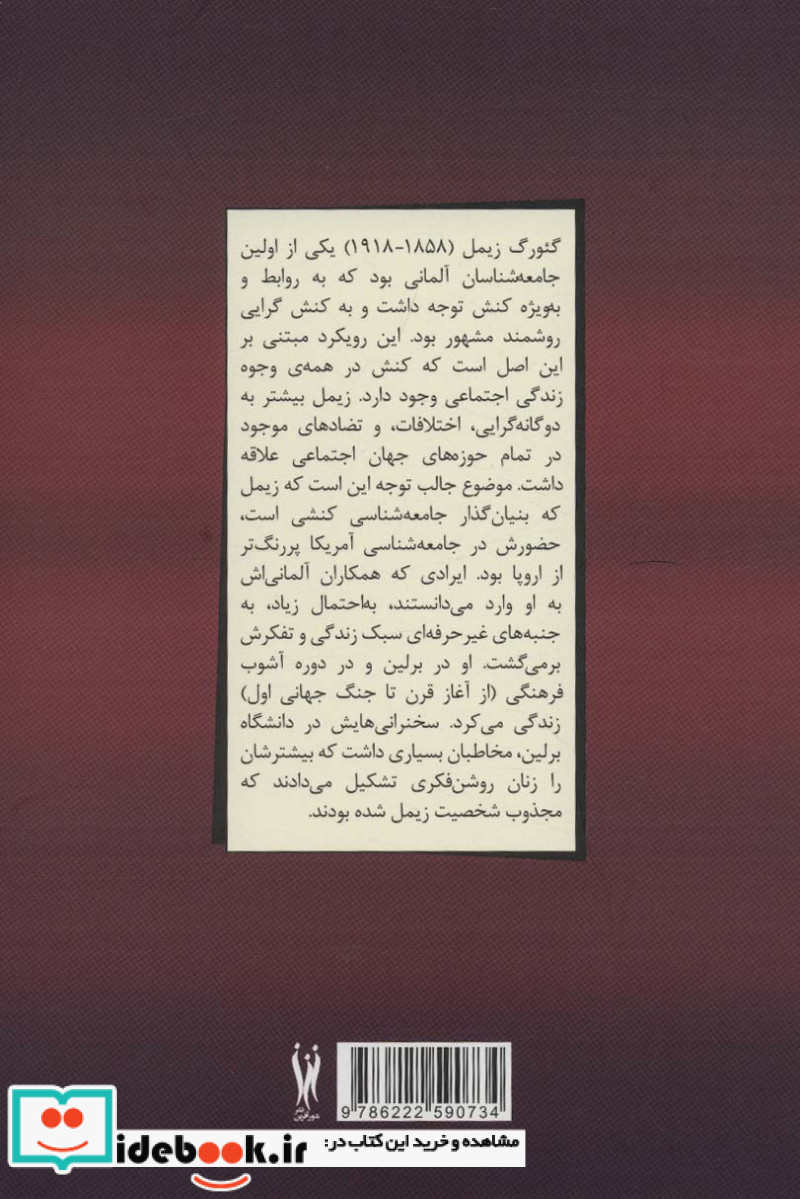 گئورگ زیمل (۱۸۵۸-۱۹۱۸) یکی از اولین
جامعه‌شناسان آلمانی بود که به روابط و
به‌ویژه کنش توجه داشت و به کنش گرایی
روشمند مشهور بود. این رویکرد مبتنی بر
این اصل است که کنش در همه‌ی وجوه
زندگی اجتماعی وجود دارد. زیمل بیشتر به
دوگانه‌گرایی، اختلافات، و تضادهای موجود
در تمام حوزه‌های جهان اجتماعی علاقه
داشت. موضوع جالب توجه این است که زیمل
که بنیان‌گذار جامعه‌شناسی کنشی است،
حضورش در جامعه‌شناسی آمریکا پررنگ‌تر
از اروپا بود. ایرادی که همکاران آلمانی‌اش
به او وارد می‌دانستند، به‌احتمال زیاد، به
جنبه‌های غیرحرفه‌ای سبک زندگی و تفکرش
برمی‌گشت. او در برلین و در دوره آشوب
فرهنگی (از آغاز قرن تا جنگ جهانی اول)
زندگی می‌کرد. سخنرانی‌هایش در دانشگاه
برلین، مخاطبان بسیاری داشت که بیشترشان
را زنان روشن‌فکری تشکیل می‌دادند که
مجذوب شخصیت زیمل شده بودند.
نشر
شورآفرین
9 786222 590734
مشاهده و خرید این کتاب در:
idebook.ir